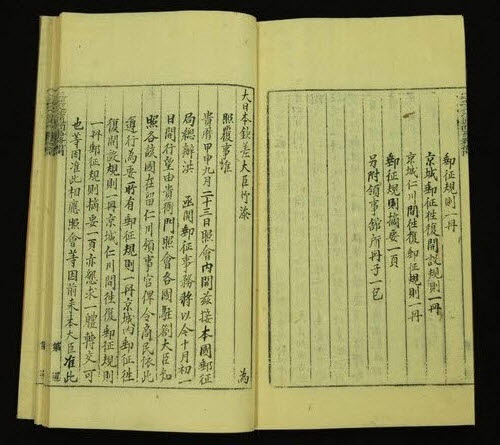 郵征規則一冊
京城郵征往復開設規則一冊
京城仁川間往復郵征規則一冊
郵征規則摘要一頁
另附領事館所冊子一包
大日本欽差大臣竹添 為
照覆事准
貴曆甲申九月二十三日照會內開玆接本國郵征
局總辦洪 函開郵征事務將以今十月初一
日開行望由貴衙門照會各國駐劄大臣知
照各該國在留仁川領事官俾令商民依此
遵行為要所有郵征規則一冊京城內郵征往
復開設規則一冊京城仁川間往復郵征規則
一冊郵征規則摘要一頁亦懇求一體轉交可
也等因准此相應照會等因前來本大臣准此